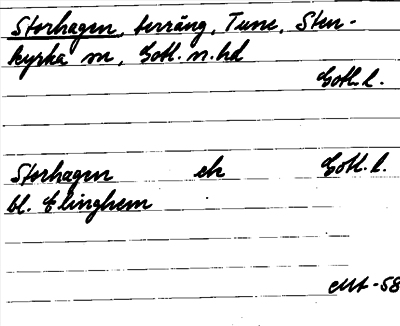 Storhagen, terräng, Tune, Sten-
kyrka sn, Gotl. n. hd
Gotl. l.
Storhagen ek Gotl. l.
bl. Elinghem
MA -58